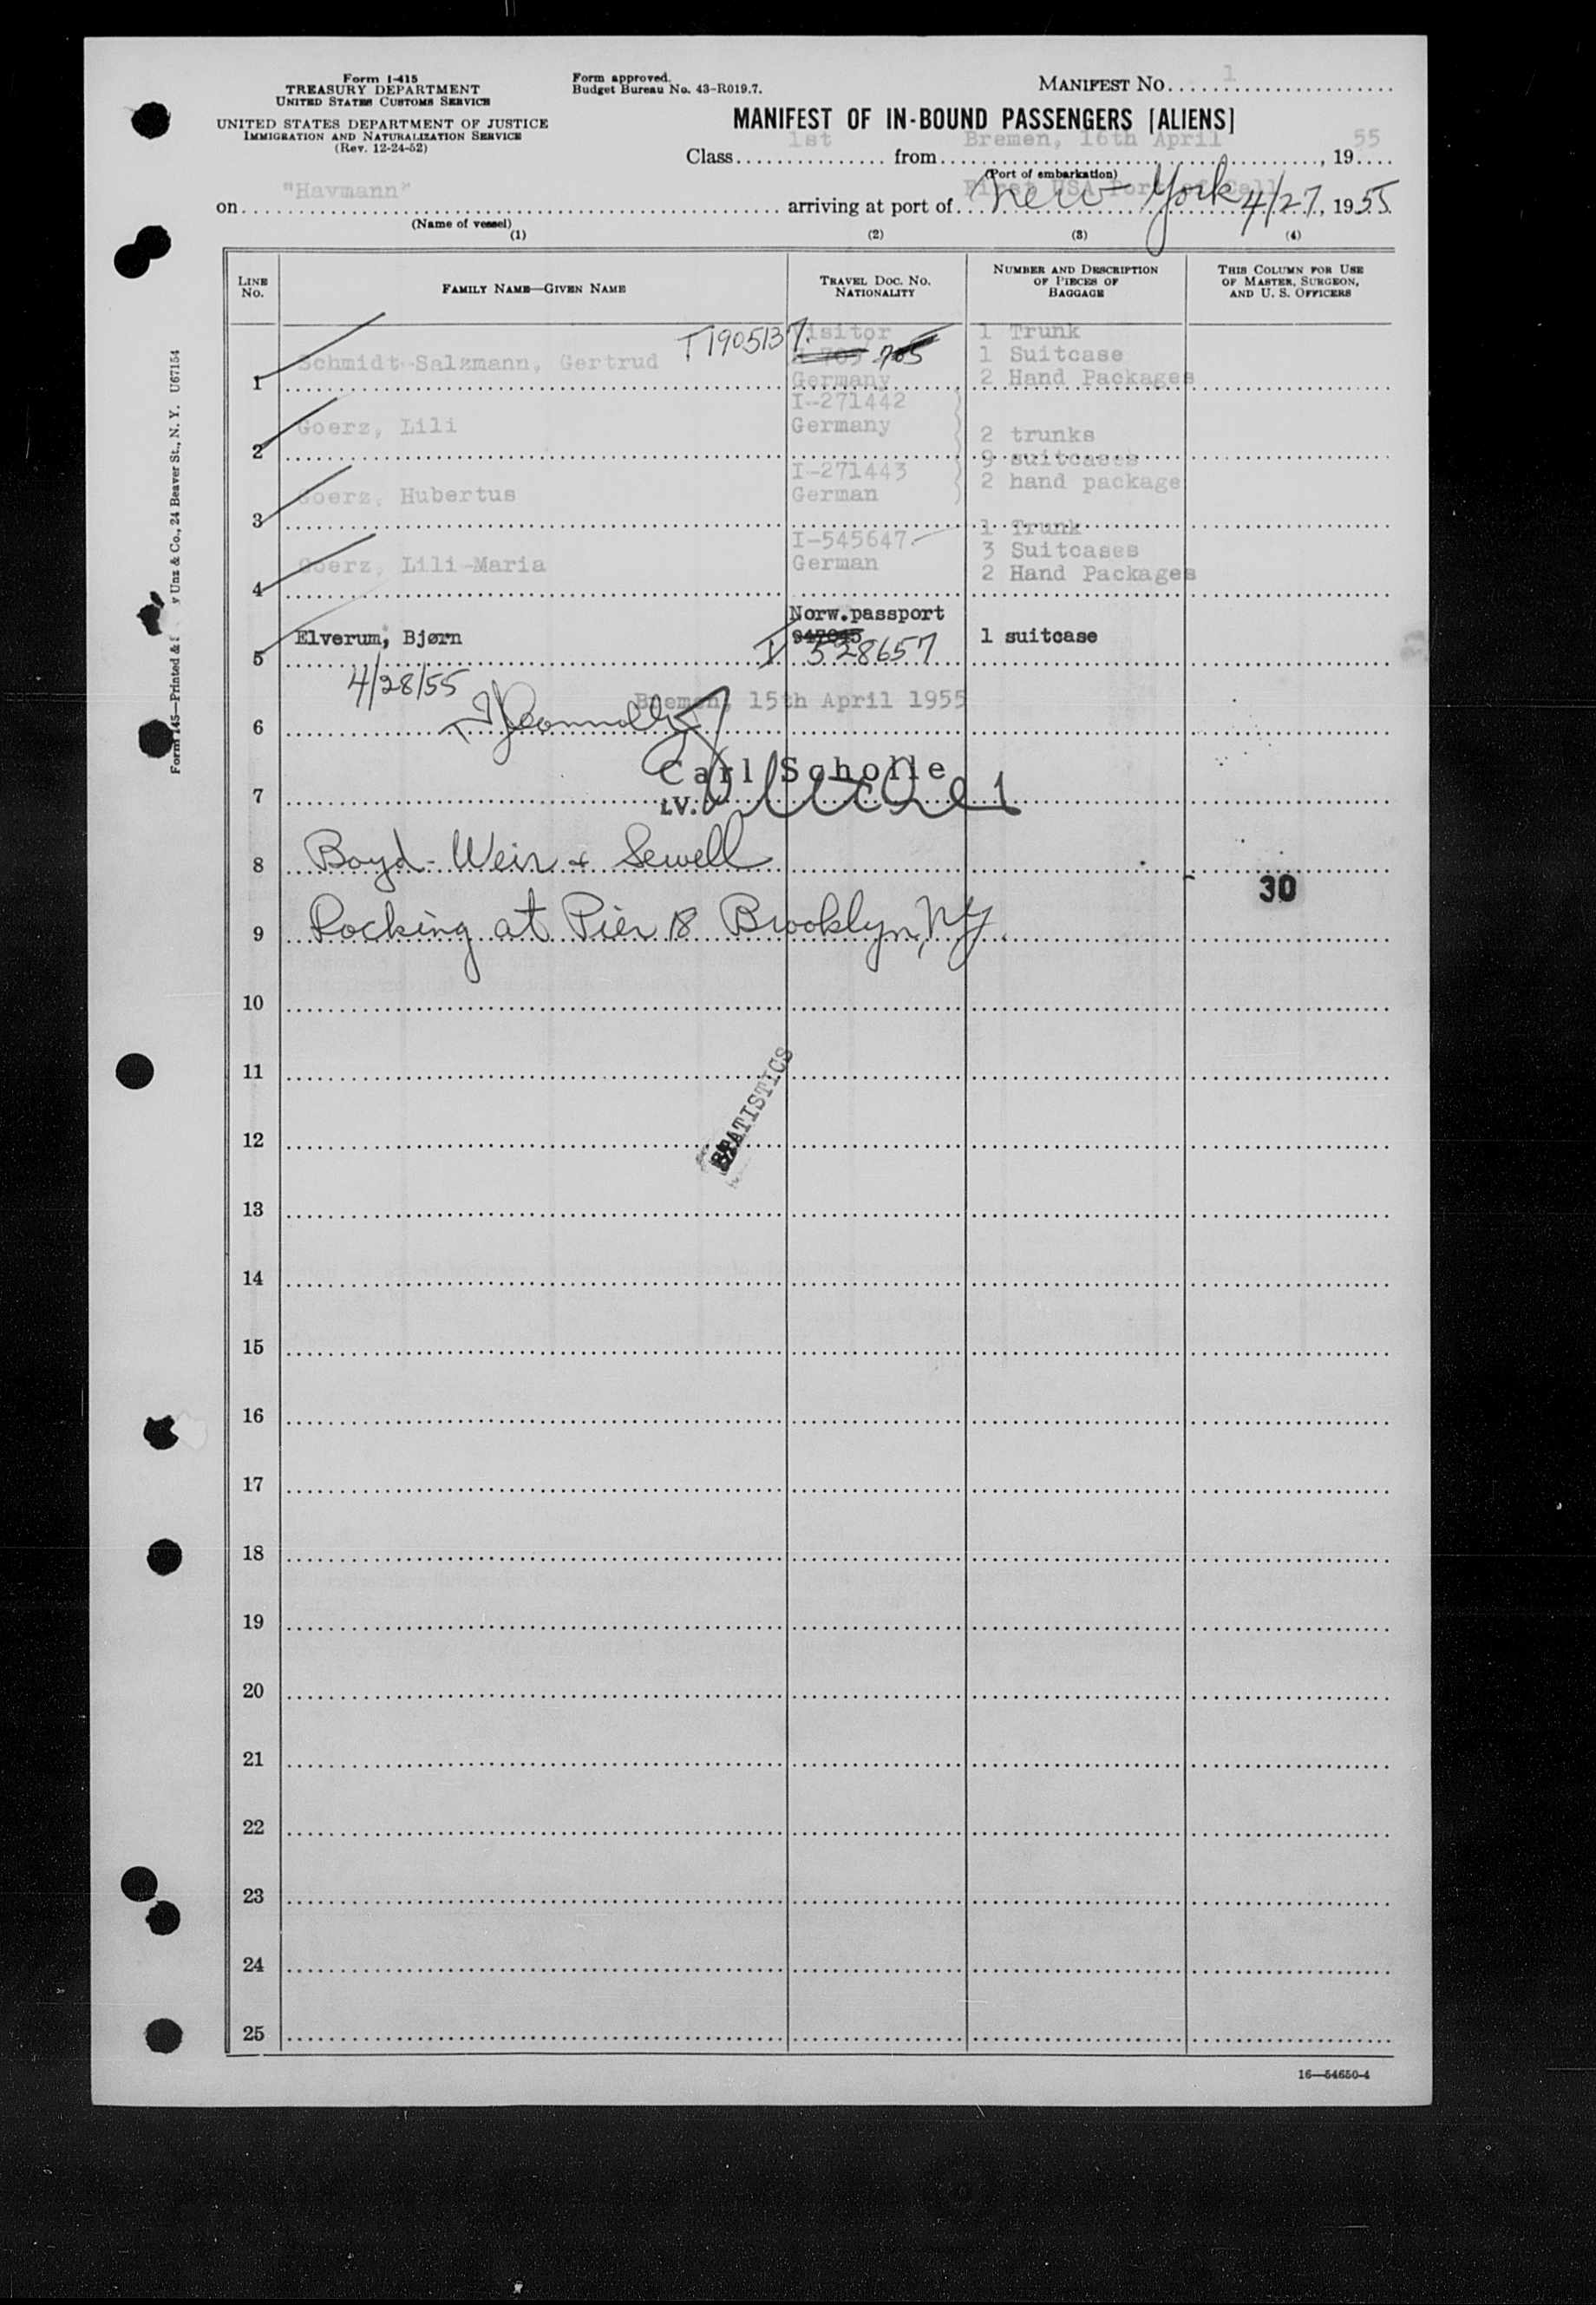 Form I-415
TREASURY DEPARTMENT
UNITED STATES CUSTOMS SERVICE
UNITED STATES DEPARTMENT OF JUSTICE
IMMIGRATION AND NATURALIZATION SERVICE
(Rev. 12-24-52)
Form approved.
Budget Bureau No. 43-R019.7.
MANIFEST NO. 1
MANIFEST OF IN-BOUND PASSENGERS [ALIENS]
Class 1st from Bremen, 16th April, 1955
(Port of embarkation)
First USA Port of Call
on "Havmann" arriving at port of New York 4/27, 1955
(Name of vessel)
(1) (2) (3) (4)
LINE NO.
FAMILY NAME—GIVEN NAME
TRAVEL DOC. NO. NATIONALITY
NUMBER AND DESCRIPTION OF PIECES OF BAGGAGE
THIS COLUMN FOR USE OF MASTER, SURGEON, AND U. S. OFFICERS
1 Schmidt-Salzmann, Gertrud T1905137. Visitor 705 Germany 1 Trunk 1 Suitcase 2 Hand Packages
2 Goerz, Lili I-271442 Germany 2 trunks
3 Goerz, Hubertus I-271443 German 9 suitcases 2 hand package
4 Goerz, Lili-Maria I-545647 German 1 Trunk 3 Suitcases 2 Hand Packages
5 Elverum, Bjørn Norw.passport 947045 I 528657 1 suitcase
4/28/55
6 Bremen, 15th April 1955
7 Carl Scholle
i.V.
8 Boyd-Weir & Sewell
30
9 Docking at Pier 18 Brooklyn, NY.
10
11
STATISTICS
12
13
14
15
16
17
18
19
20
21
22
23
24
25
16—54650-4
Unz & Co., 24 Beaver St., N. Y. U67154